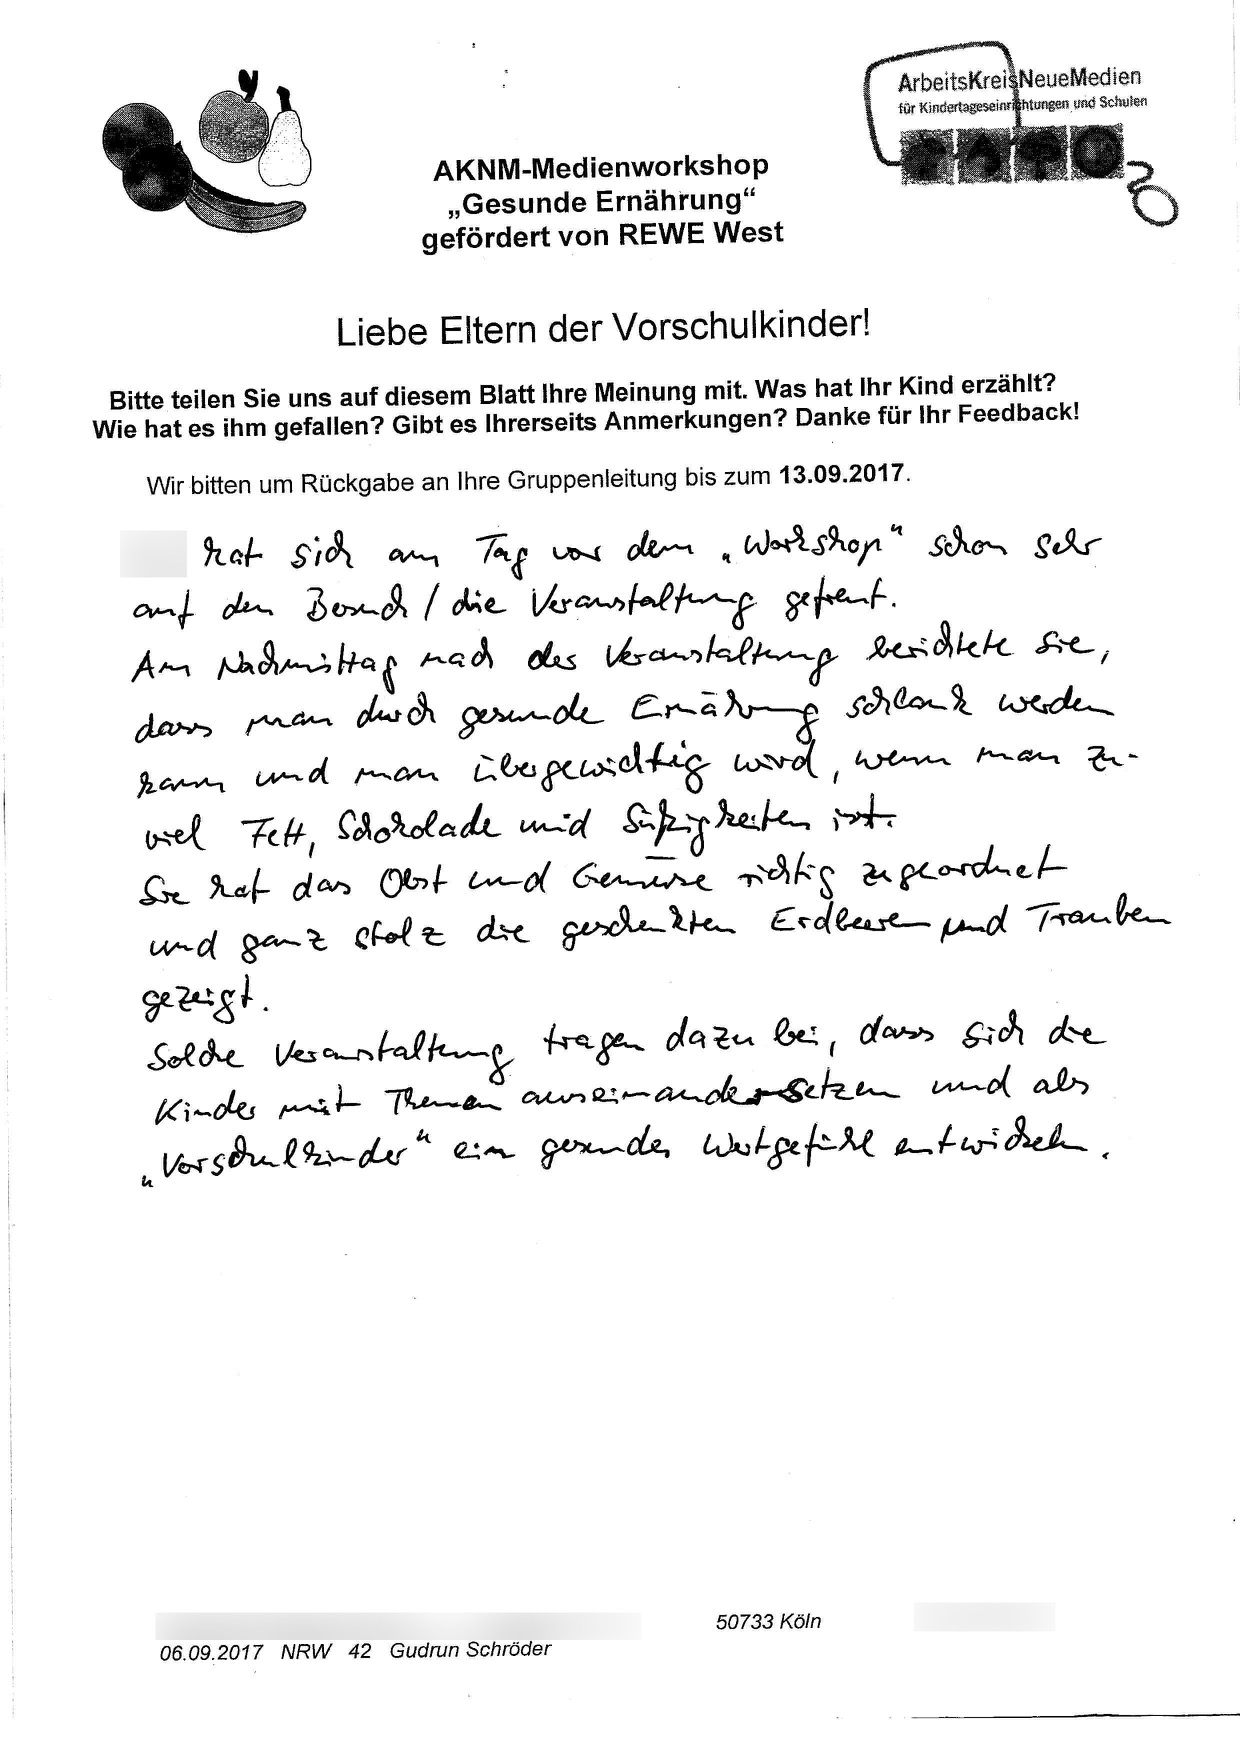 ArbeitsKreisNeueMedien
für Kindertageseinrichtungen und Schulen
AKNM-Medienworkshop
„Gesunde Ernährung“
gefördert von REWE West
Liebe Eltern der Vorschulkinder!
Bitte teilen Sie uns auf diesem Blatt Ihre Meinung mit. Was hat Ihr Kind erzählt?
Wie hat es ihm gefallen? Gibt es Ihrerseits Anmerkungen? Danke für Ihr Feedback!
Wir bitten um Rückgabe an Ihre Gruppenleitung bis zum 13.09.2017.
hat sich am Tag vor dem „Workshop“ schon sehr
auf den Besuch / die Veranstaltung gefreut.
Am Nachmittag nach der Veranstaltung berichtete sie,
dass man durch gesunde Ernährung schlank werden
kann und man übergewichtig wird, wenn man zu-
viel Fett, Schokolade und Süßigkeiten isst.
Sie hat das Obst und Gemüse richtig zugeordnet
und ganz stolz die geschenkten Erdbeeren und Trauben
gezeigt.
Solche Veranstaltung tragen dazu bei, dass sich die
Kinder mit Themen auseinandersetzen und als
„Vorschulkinder“ ein gesundes Wertgefühl entwickeln.
50733 Köln
06.09.2017 NRW 42 Gudrun Schröder